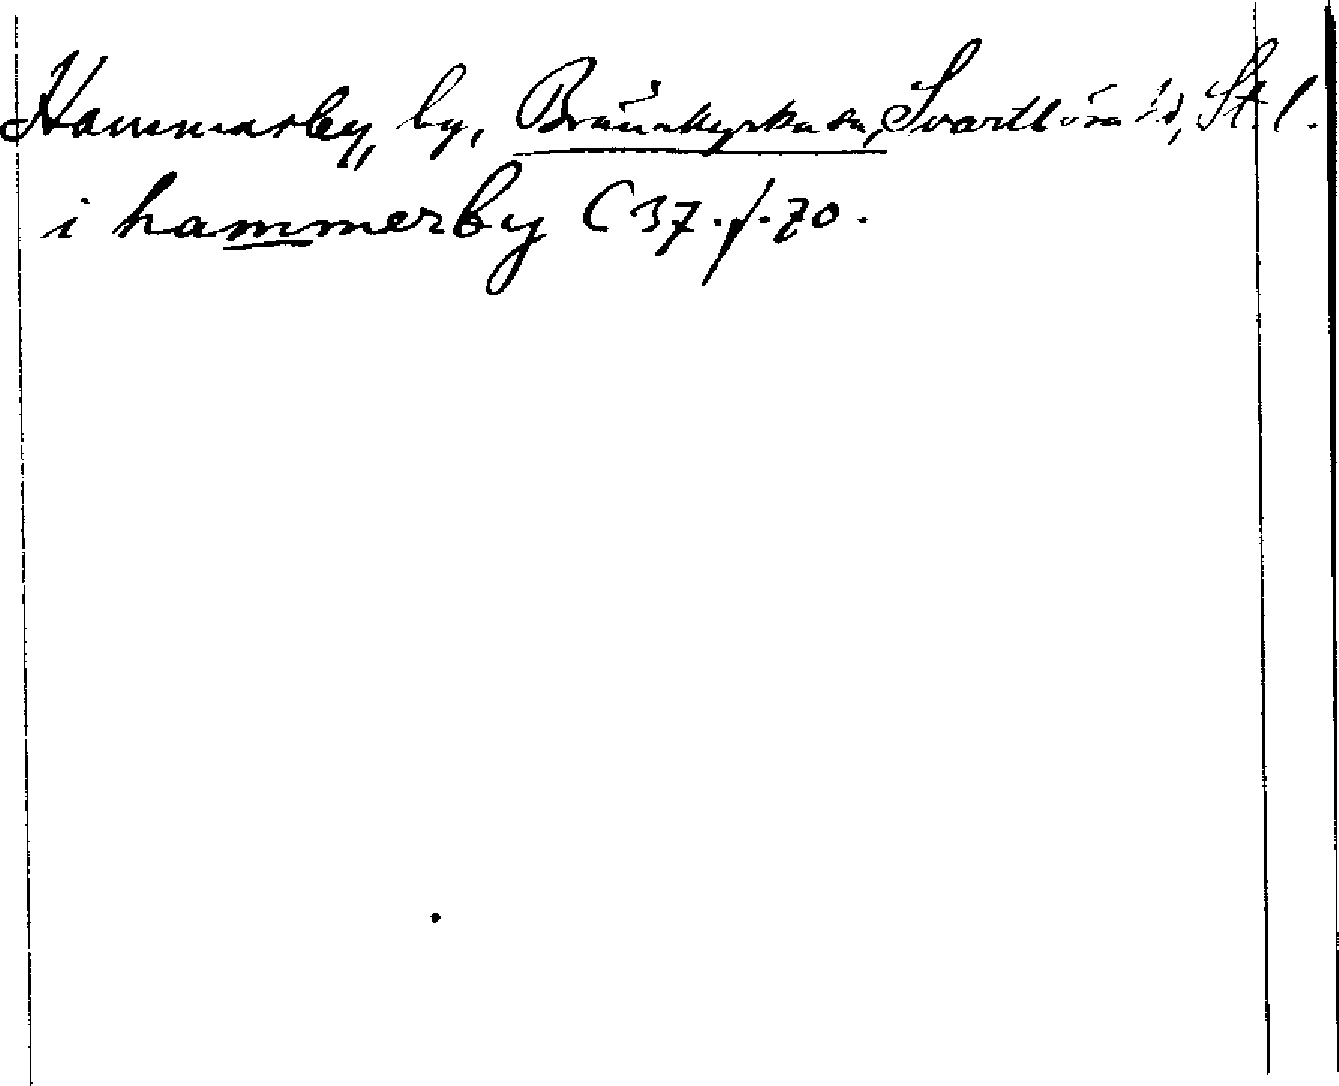 Hammarby, by, Brännkyrka sn, Svartlösa hd, St. l.
i hammerby C 37. f. 70.